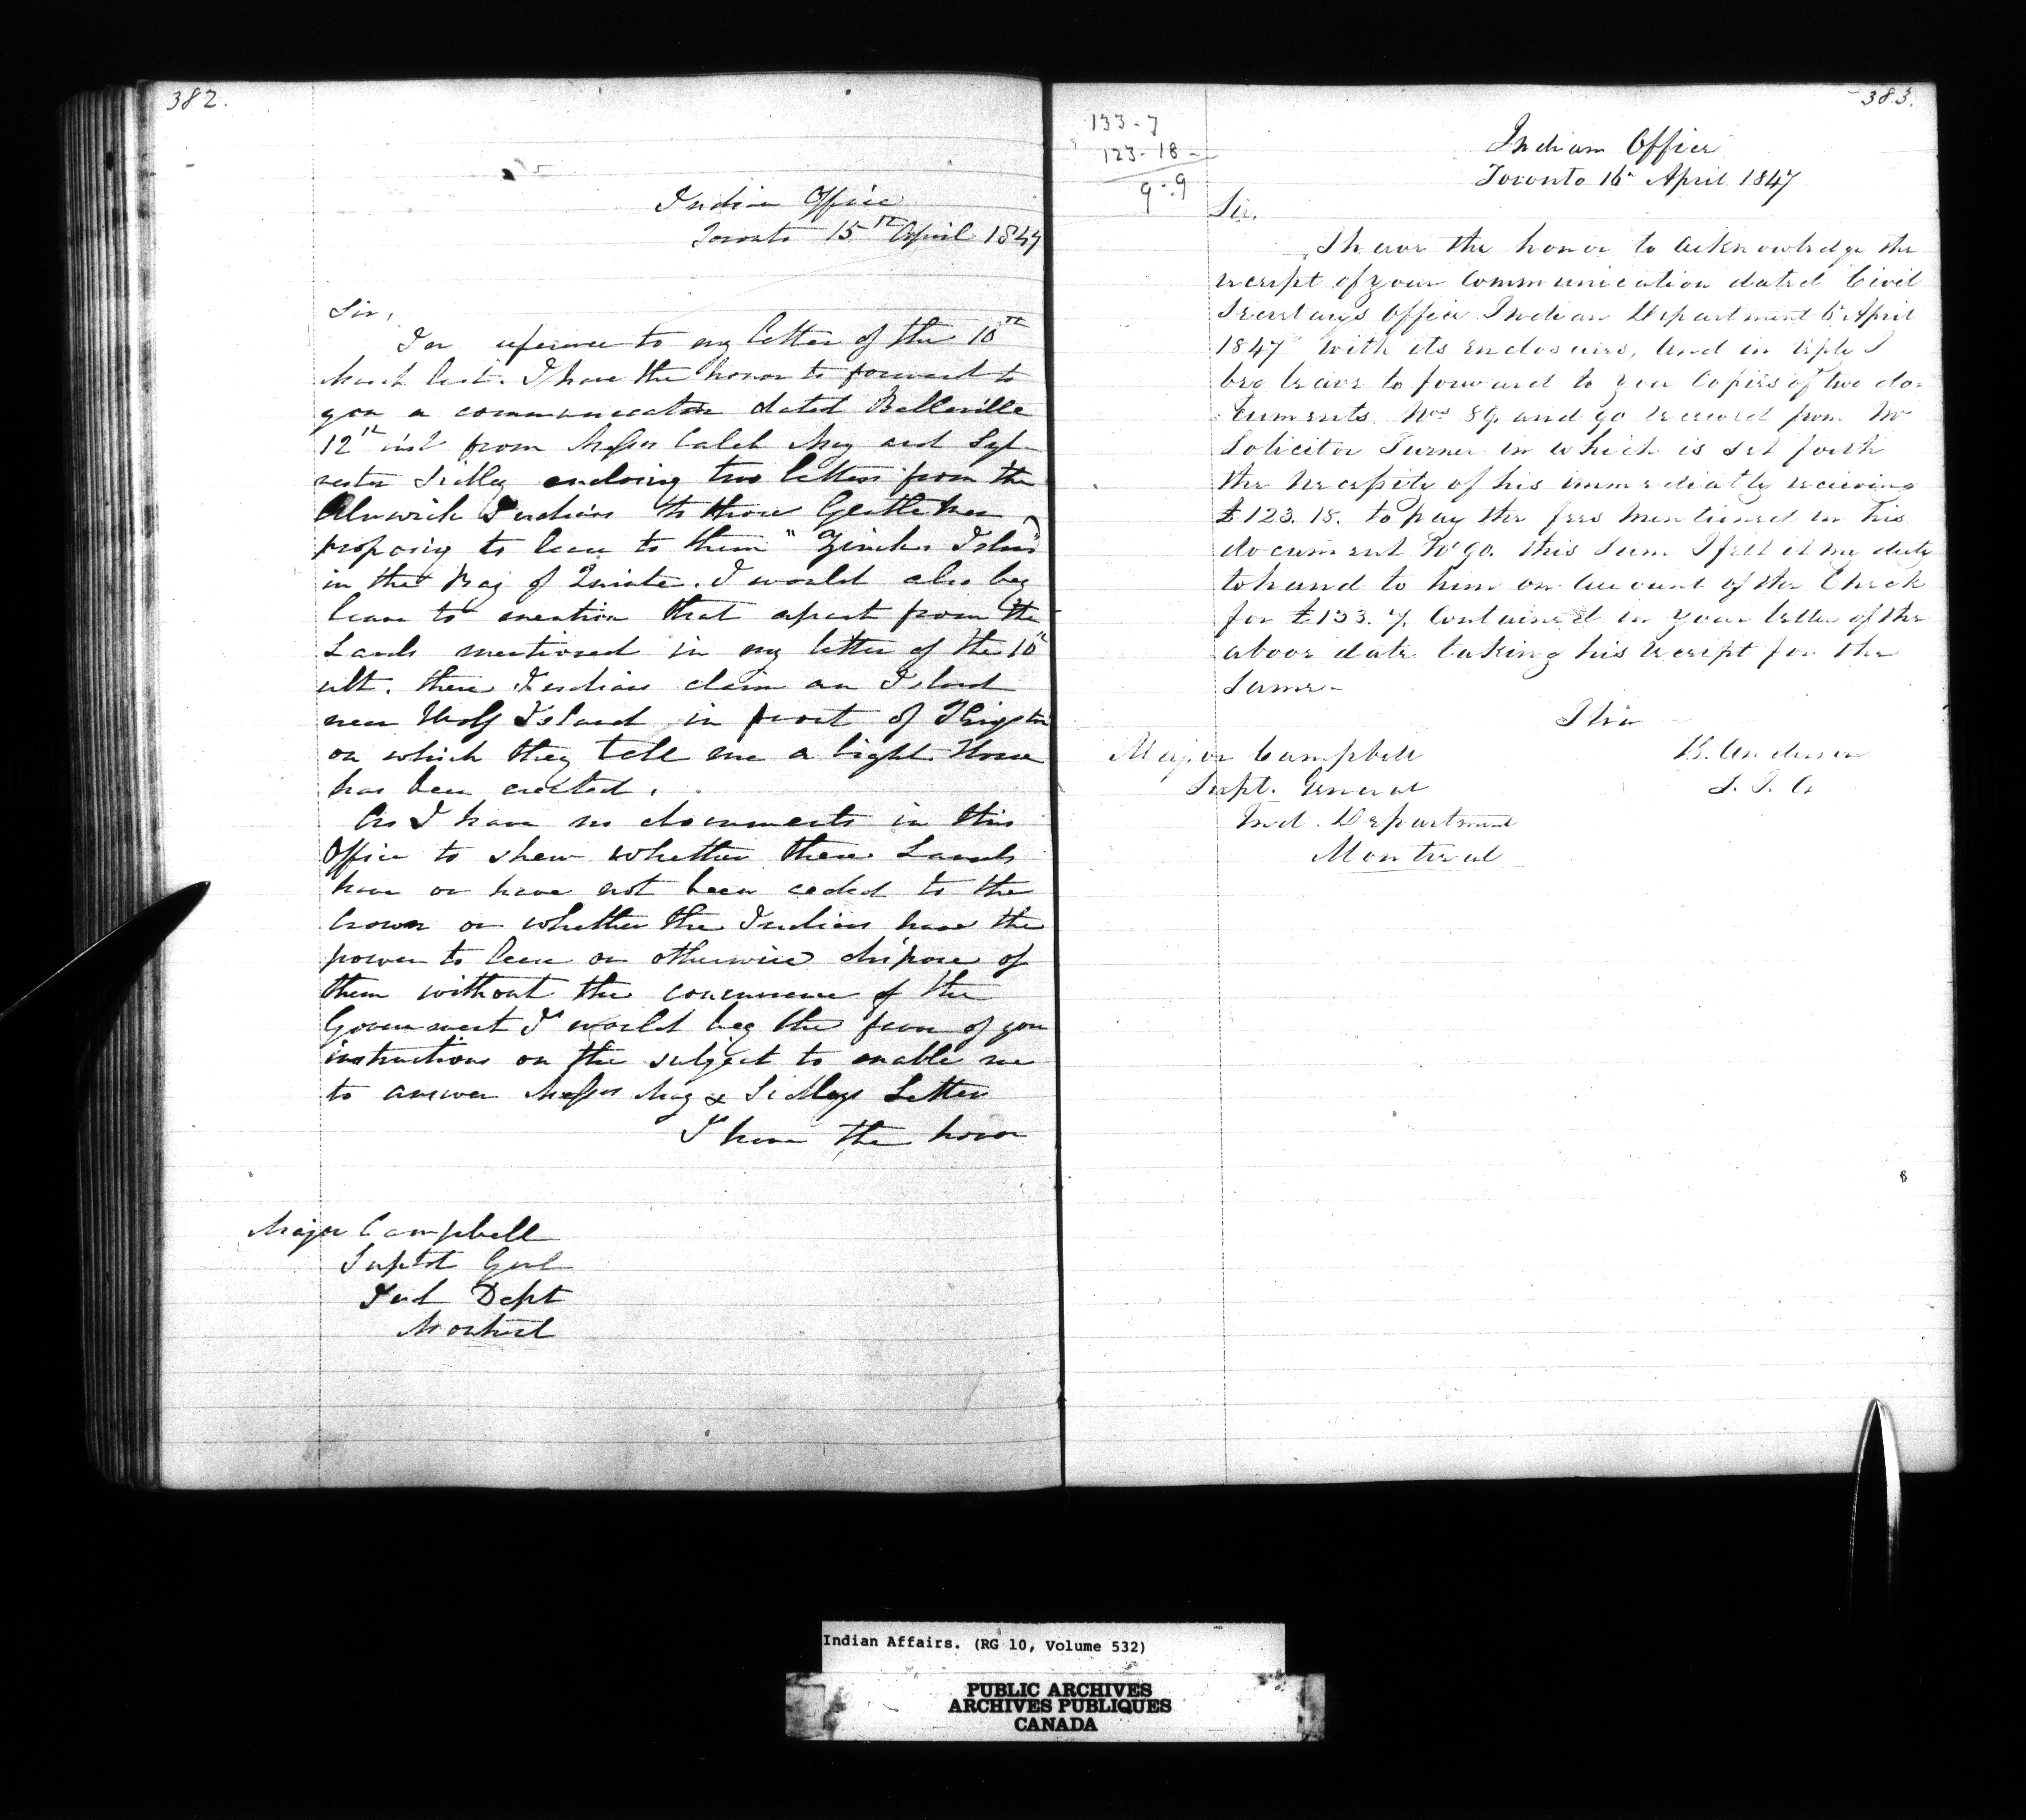 382.
Indian Office
Toronto 15th April 1847
Sir,
In reference to my letter of the 10th
March last. I have the honor to forward to
you a communication dated Belleville
12th inst from Messrs Caleb May and Syl-
vester Sidley enclosing two letters from the
Alnwick Indians to those Gentlemen
proposing to lease to them " Island
in the Bay of Quinte. I would also beg
leave to mention that apart from the
Lands mentioned in my letter of the 10th
ult. these Indians claim an Island
near Wolf Island in front of Kingston
on which they tell me a Light House
has been erected.
As I have no documents in this
Office to shew whether these Lands
have or have not been ceded to the
Crown or whether the Indians have the
power to lease or otherwise dispose of
them without the concurrence of the
Government I would beg the favor of you
instructions on the subject to enable me
to answer Messrs May & Sidleys Letter
I have the honor
Major Campbell
Suptdt Genl
Ind Dept
Montreal
383.
133-7
123-18-
9-.9
Indian Office
Toronto 16th April 1847
Sir,
I have the honor to acknowledge the
receipt of your Communication dated Civil
Secretarys Office Indian Department 6th April
1847 with its enclosures, and in reply I
beg leave to forward to you Copies of two do-
-cuments Nos 89 and 90 received from Mr
Solicitor Turner in which is set forth
the necessity of his immediatly recieving
£123.18. to pay the fees mentioned in his
document No 90. this sum I felt it my duty
to hand to him on account of the Check
for £133.7. Contained in your letter of the
above date taking his receipt for the
Same-
I hv
Major Campbell
Supt. General
Ind. Department
Montreal
Anderson
S. I. A
Indian Affairs. (RG 10, Volume 532)
PUBLIC ARCHIVES
ARCHIVES PUBLIQUES
CANADA